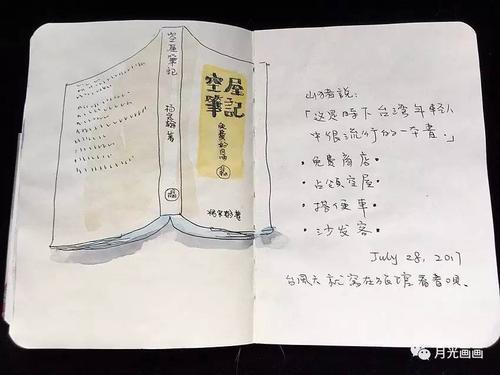 空屋筆記
空屋
筆記
免費的自由
山豬說:
「这是時下台湾年轻人
中很流行的一本書。」
• 免費商店
• 占領空屋
• 搭便車
• 沙发客
July 28, 2017
台風天就窩在旅店看書唄。
月光画画